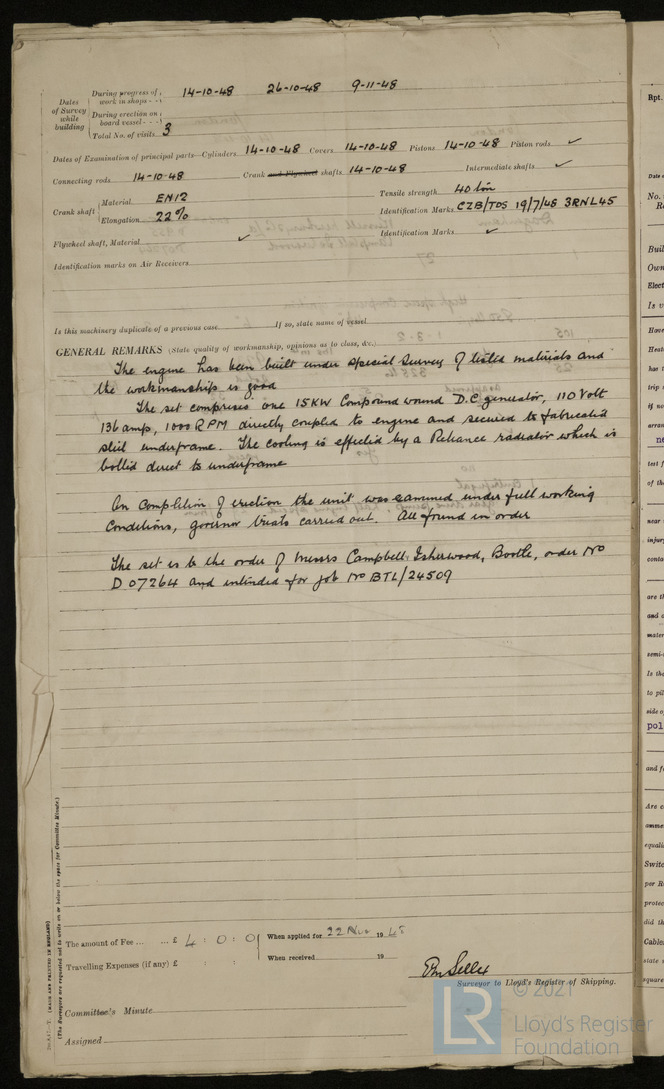 During progress of work in shops - - 14-10-48 26-10-48 9-11-48
Dates of Survey while building
During erection on board vessel - - -
Total No. of visits 3
Dates of Examination of principal parts—Cylinders 14-10-48 Covers 14-10-48 Pistons 14-10-48 Piston rods ✓
Connecting rods 14-10-48 Crank and Flywheel shafts 14-10-48 Intermediate shafts ✓
Crank shaft Material EN12 Tensile strength 40 ton
Elongation 22% Identification Marks CZB/TOS 19/7/48 3RNL45
Flywheel shaft, Material ✓ Identification Marks ✓
Identification marks on Air Receivers
Is this machinery duplicate of a previous case If so, state name of vessel
GENERAL REMARKS (State quality of workmanship, opinions as to class, &c.)
The engine has been built under special survey of tested materials and
the workmanship is good
The set comprises one 15KW Compound wound D.C generator, 110 Volt
136 amp, 1000 RPM directly coupled to engine and secured to fabricated
steel underframe. The cooling is effected by a Reliance radiator which is
bolted direct to underframe
On Completion of erection the unit was examined under full working
Conditions, governor trials carried out. All found in order
The set is to the order of Messrs Campbell. Isherwood, Bootle, order No
D 07264 and intended for job No BTL/24509
The amount of Fee ... ... £ 4 : 0 : 0 When applied for 22 Nov 1948
Travelling Expenses (if any) £ : : When received 19
Surveyor to Lloyd's Register of Shipping.
Committee's Minute
Assigned
(MADE AND PRINTED IN ENGLAND)
(The Surveyors are requested not to write on or below the space for Committee Minute.)
Rpt.
© 2021
LR Lloyd's Register
Foundation